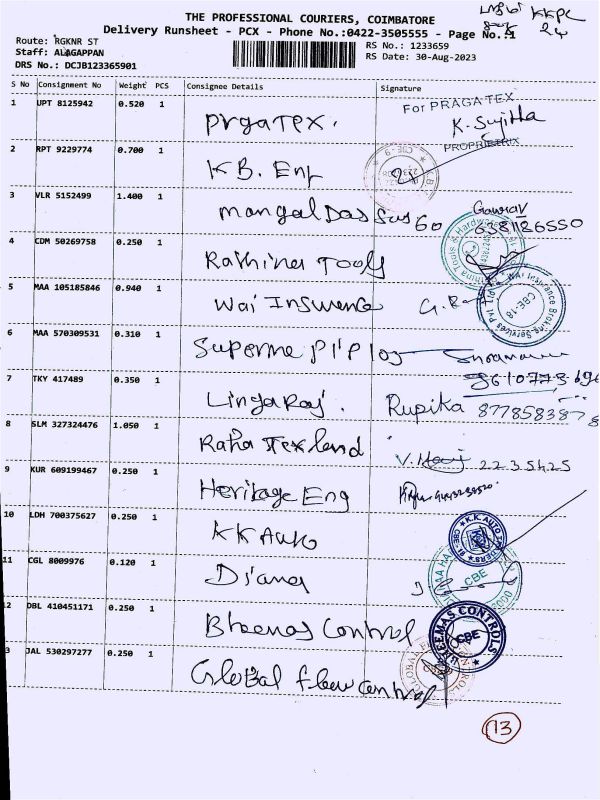 THE PROFESSIONAL COURIERS, COIMBATORE
Delivery Runsheet - PCX - Phone No.:0422-3505555 - Page No.:1
KKPC
Route: RGKNR ST
RS No.: 1233659
Staff: ALAGAPPAN
RS Date: 30-Aug-2023
DRS No.: DCJB123365901
S No Consignment No Weight PCS Consignee Details Signature
1 UPT 8125942 0.520 1 PrgaTex. For PRAGATEX
K. Sujitha
PROPRIETRIX
2 RPT 9229774 0.700 1 K B. Enf CBE-9
3 VLR 5152499 1.400 1 mangal Dass Sus Go Gaurav
6381186550
4 CDM 50269758 0.250 1 Rathina Tools
5 MAA 105185846 0.940 1 Wai Insurence Wai Insurance Broking Services Pvt Ltd CBE-18
6 MAA 570309531 0.310 1 Superme
7 TKY 417489 0.350 1 LingaRaj. Rupika 877858387
8 SLM 327324476 1.050 1 Raha Texland V. 2235425
9 KUR 609199467 0.250 1 Heritage Eng
10 LDH 700375627 0.250 1 KK Auto K.K AUTO
11 CGL 8009976 0.120 1 Diana CBE
12 DBL 410451171 0.250 1 Bheemas Control BHEEMAS CONTROLS CBE
13 JAL 530297277 0.250 1 Global flow control
13